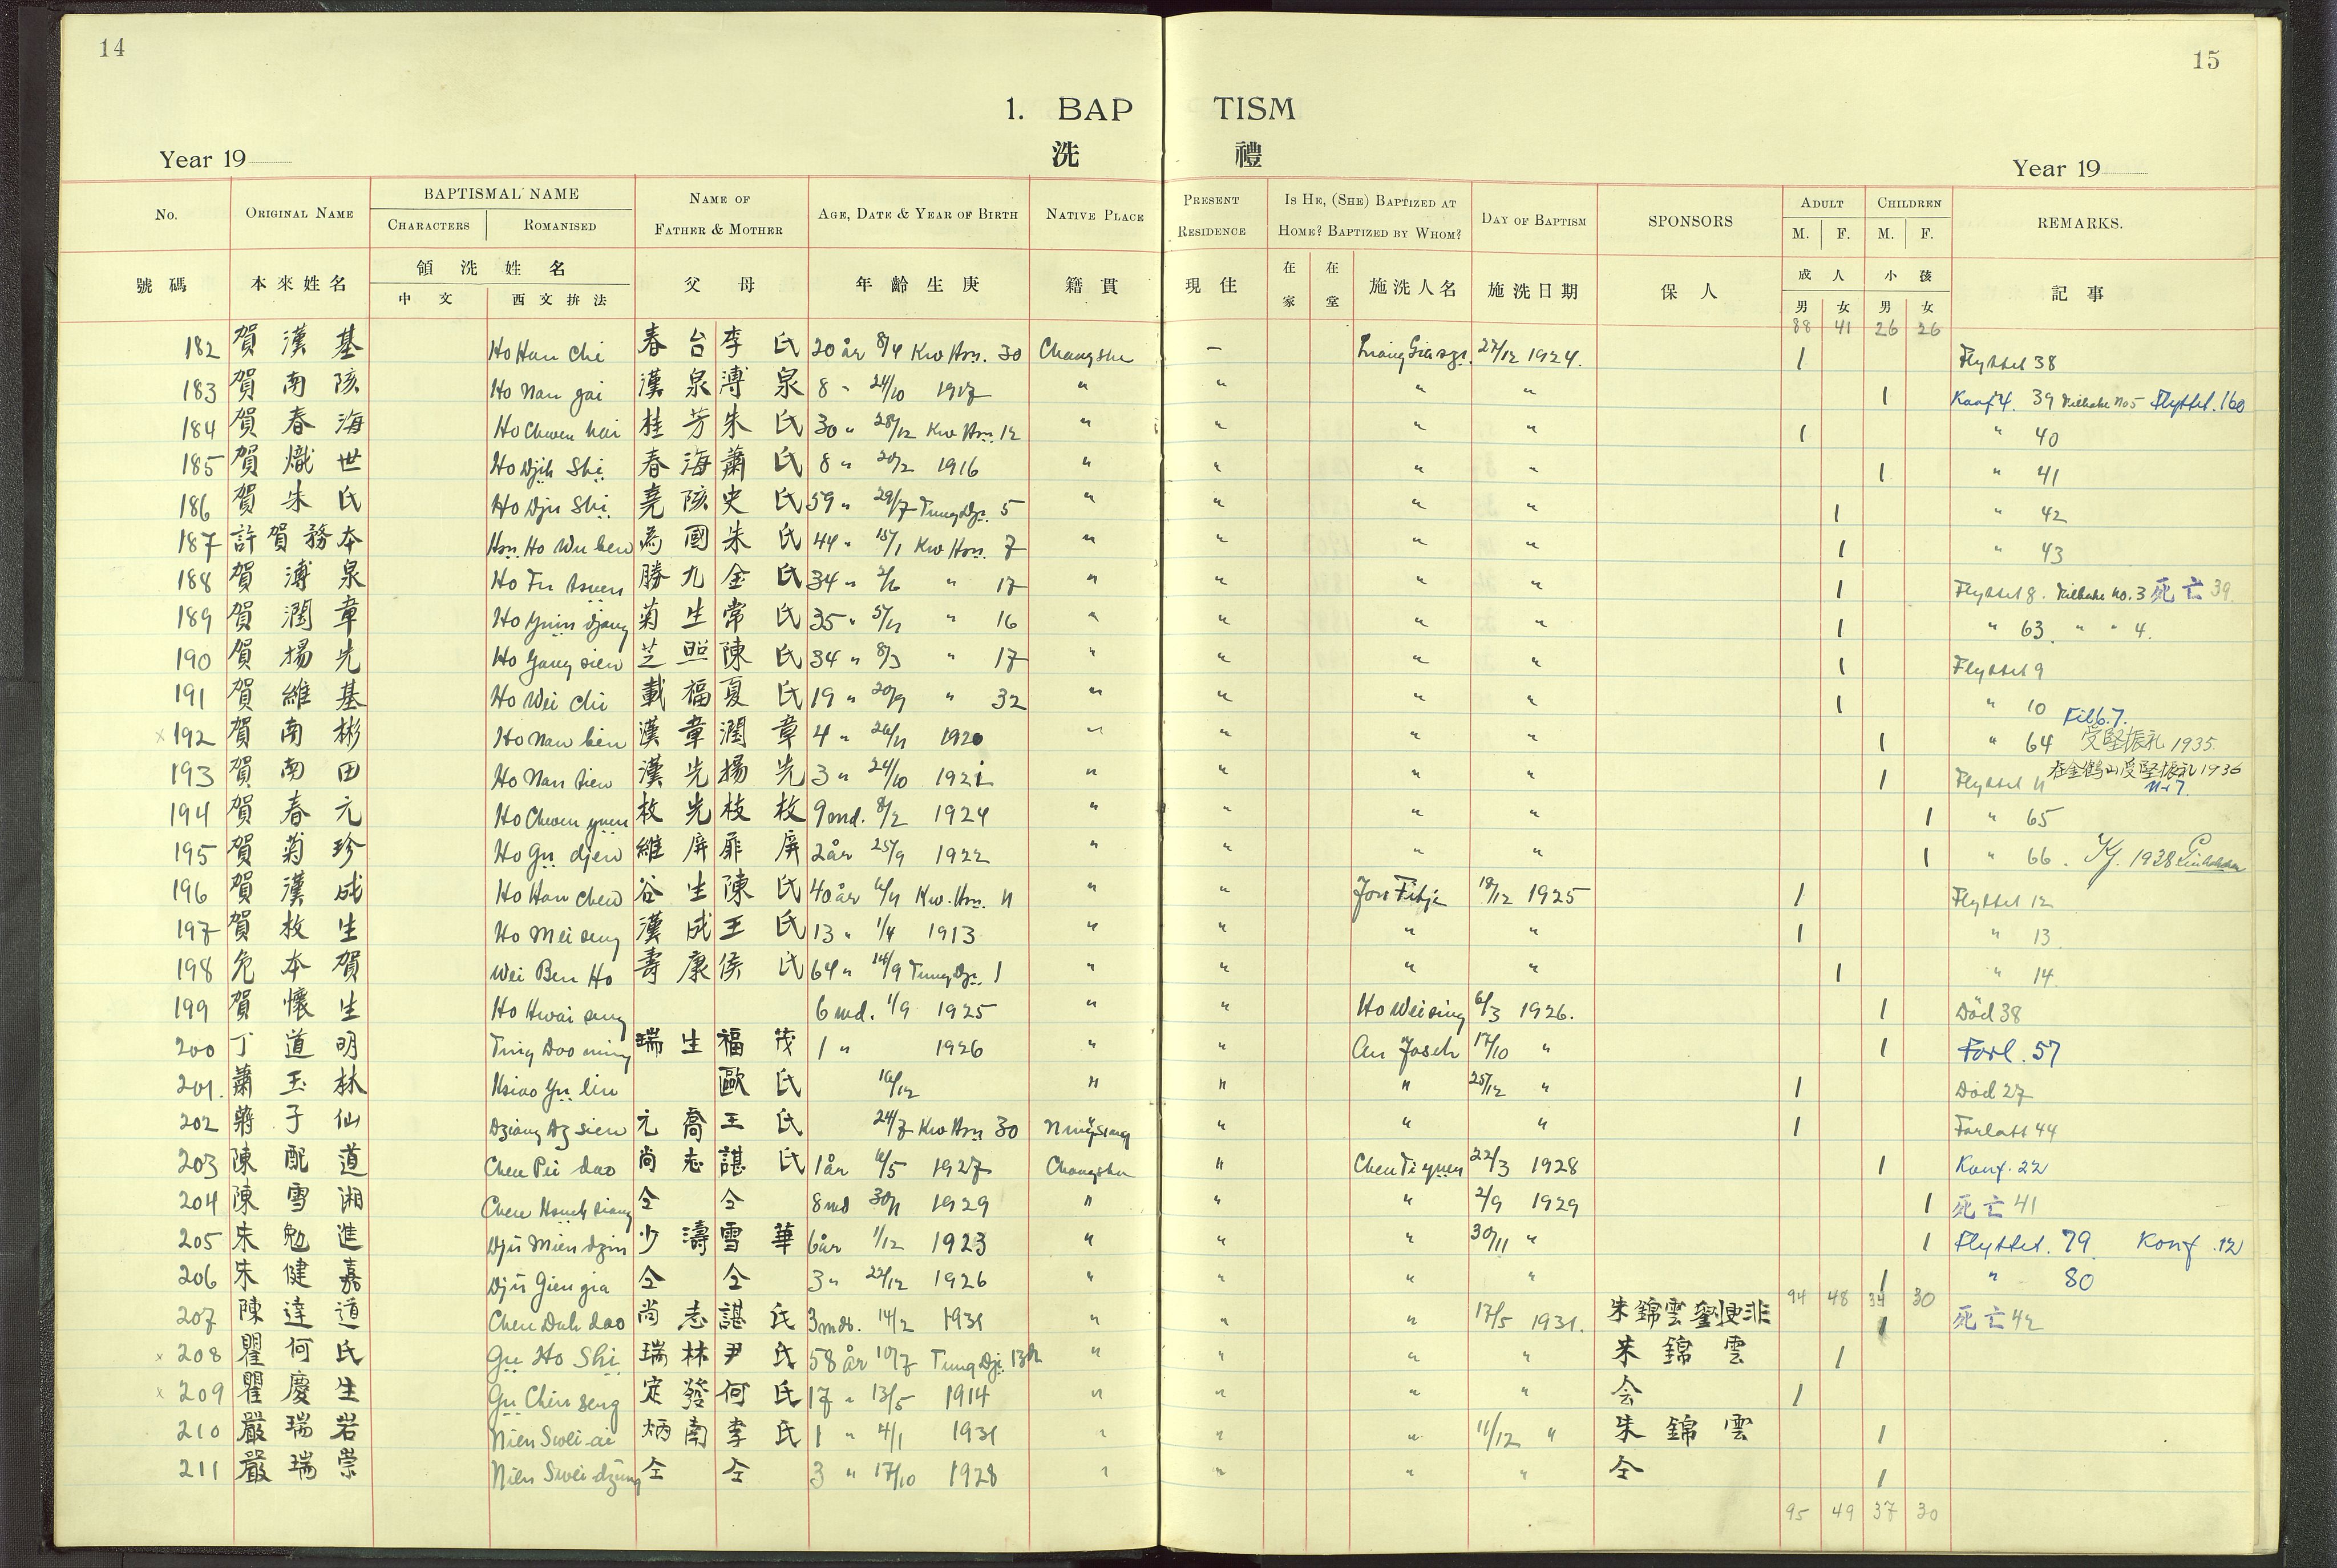 14
15
1. BAPTISM
洗 禮
Year 19
Year 19
No. ORIGINAL NAME BAPTISMAL NAME NAME OF FATHER & MOTHER AGE, DATE & YEAR OF BIRTH NATIVE PLACE PRESENT RESIDENCE IS HE, (SHE) BAPTIZED AT HOME? BAPTIZED BY WHOM? DAY OF BAPTISM SPONSORS ADULT CHILDREN REMARKS.
CHARACTERS ROMANISED M. F. M. F.
號碼 本來姓名 領洗姓名 父母 年齡生庚 籍貫 現住 在家 在堂 施洗人名 施洗日期 保人 成人 小孩 記事
中文 西文拚法 男 女 男 女
88 41 26 26
182 賀漢基 Ho Han Chi 春台 李氏 20 år 8/4 Kw Hsü. 30 Changsha – 27/12 1924. 1 Flyttet 38
183 賀南陔 Ho Nan gai 漢泉 溥泉 8 " 24/10 1917 " " " " 1 Konf 4. 39 Flyttet. 160
184 賀春海 Ho Chwen hai 桂芳 朱氏 30 " 28/12 Kw Hsü 12 " " " " 1 " 40
185 賀熾世 Ho Djih Shi 春海 蕭氏 8 " 20/2 1916 " " " " 1 " 41
186 賀朱氏 Ho Dju Shi 堯陔 史氏 59 " 29/7 Tung Dji. 5 " " " " 1 " 42
187 許賀務本 Hsü Ho Wu ben 為國 朱氏 44 " 15/1 Kw Hsü. 7 " " " " 1 " 43
188 賀溥泉 Ho Fu tsuen 勝九 金氏 34 " 2/6 " 17 " " " " 1 Flyttet 8. no. 3 死亡 39
189 賀潤章 菊生 常氏 35 " " 16 " " " " 1 " 63. " " 4.
190 賀揚先 Ho Yang sien 芝照 陳氏 34 " 8/3 " 17 " " " " 1 Flyttet 9
191 賀維基 Ho Wei chi 載福 夏氏 19 " 20/9 " 32 " " " " 1 " 10
x 192 賀南彬 Ho Nan bin 漢章 潤章 4 " 1920 " " " " 1 " 64 受堅振礼 1935.
193 賀南田 Ho Nan tien 漢先 揚先 3 " 24/10 1921 " " " " 1 Flyttet 11 在金鶴山受堅振礼 1936
194 賀春元 Ho Chwen yuen 枚先 枝枚 9 md. 8/2 1924 " " " " 1 " 65
195 賀菊珍 Ho Gü djen 維屏 扉屏 2 år 25/9 1922 " " " " 1 " 66. Kf. 1938
196 賀漢成 Ho Han chen 谷生 陳氏 40 år Kw. Hsü. 11 " " 18/12 1925 1 Flyttet 12
197 賀枚生 Ho Mei seng 漢成 王氏 13 " 1/4 1913 " " " " 1 " 13
198 危本賀 Wei Ben Ho 壽康 侯氏 64 " 14/9 Tung Dji. 1 " " " " 1 " 14
199 賀懷生 Ho Hwai seng 6 md. 1/9 1925 " " Ho Wei sing 6/3 1926. 1 Död 38
200 丁道明 Ting Dao ming 瑞生 福茂 1 " 1926 " " 17/10 " 1 Forl. 57
201. 蕭玉林 Hsiao Yü lin 歐氏 " " " 25/12 " 1 Död 27
202 蔣子仙 Dziang Dz sien 元喬 王氏 24/7 Kw Hsü 30 " " " 1 Forlatt 44
203 陳配道 Chen Pei dao 尚志 諶氏 1 år 1927 Changsha " Chen Ti yuen 22/3 1928 1 Konf. 22
204 陳雪湘 Chen Hsueh siang 仝 仝 8 md 30/11 1929 " " " 2/9 1929 1 死亡 41
205 朱勉進 Djü Mien dzin 少濤 雪華 6 år 1/12 1923 " " " 30/11 " 1 Flyttet. 79. Konf. 12
206 朱健嘉 Djü Gien gia 仝 仝 3 " 22/12 1926 " " " " 1 " 80
94 48 34 30
207 陳達道 Chen Dah dao 尚志 諶氏 3 mdr. 14/2 1931 " " " 17/5 1931. 朱錦雲 1 死亡 42
x 208 瞿何氏 Gü Ho Shi 瑞林 尹氏 58 år 10/7 Tung Dji. 13 " " " " 朱錦雲 1
x 209 瞿慶生 Gü Chin seng 定發 何氏 17 " 13/5 1914 " " " " 仝 1
210 嚴瑞岩 Nien Swei ai 炳南 李氏 1 " 4/1 1931 " " " 11/12 " 朱錦雲 1
211 嚴瑞榮 仝 仝 3 " 17/10 1928 " " " " 仝 1
95 49 37 30